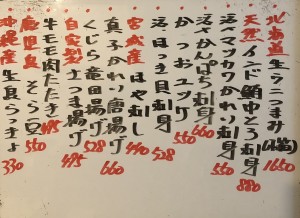 北海道 生ウニつまみ(小箱) 1650
天然 インド鮪中とろ刺身 880
活〆マツカワかれい刺身 660
活〆かんぱち刺身 550
かつおユッケ 550
活ほっき貝刺身 528
宮城産 ほや蒸し 440
真子かれい唐揚げ 660
くじら竜田揚げ 528
自家製 さつま揚げ 495
牛モモ肉たたき 495
鹿児島 そら豆 550
沖縄産 生島らっきょ 330